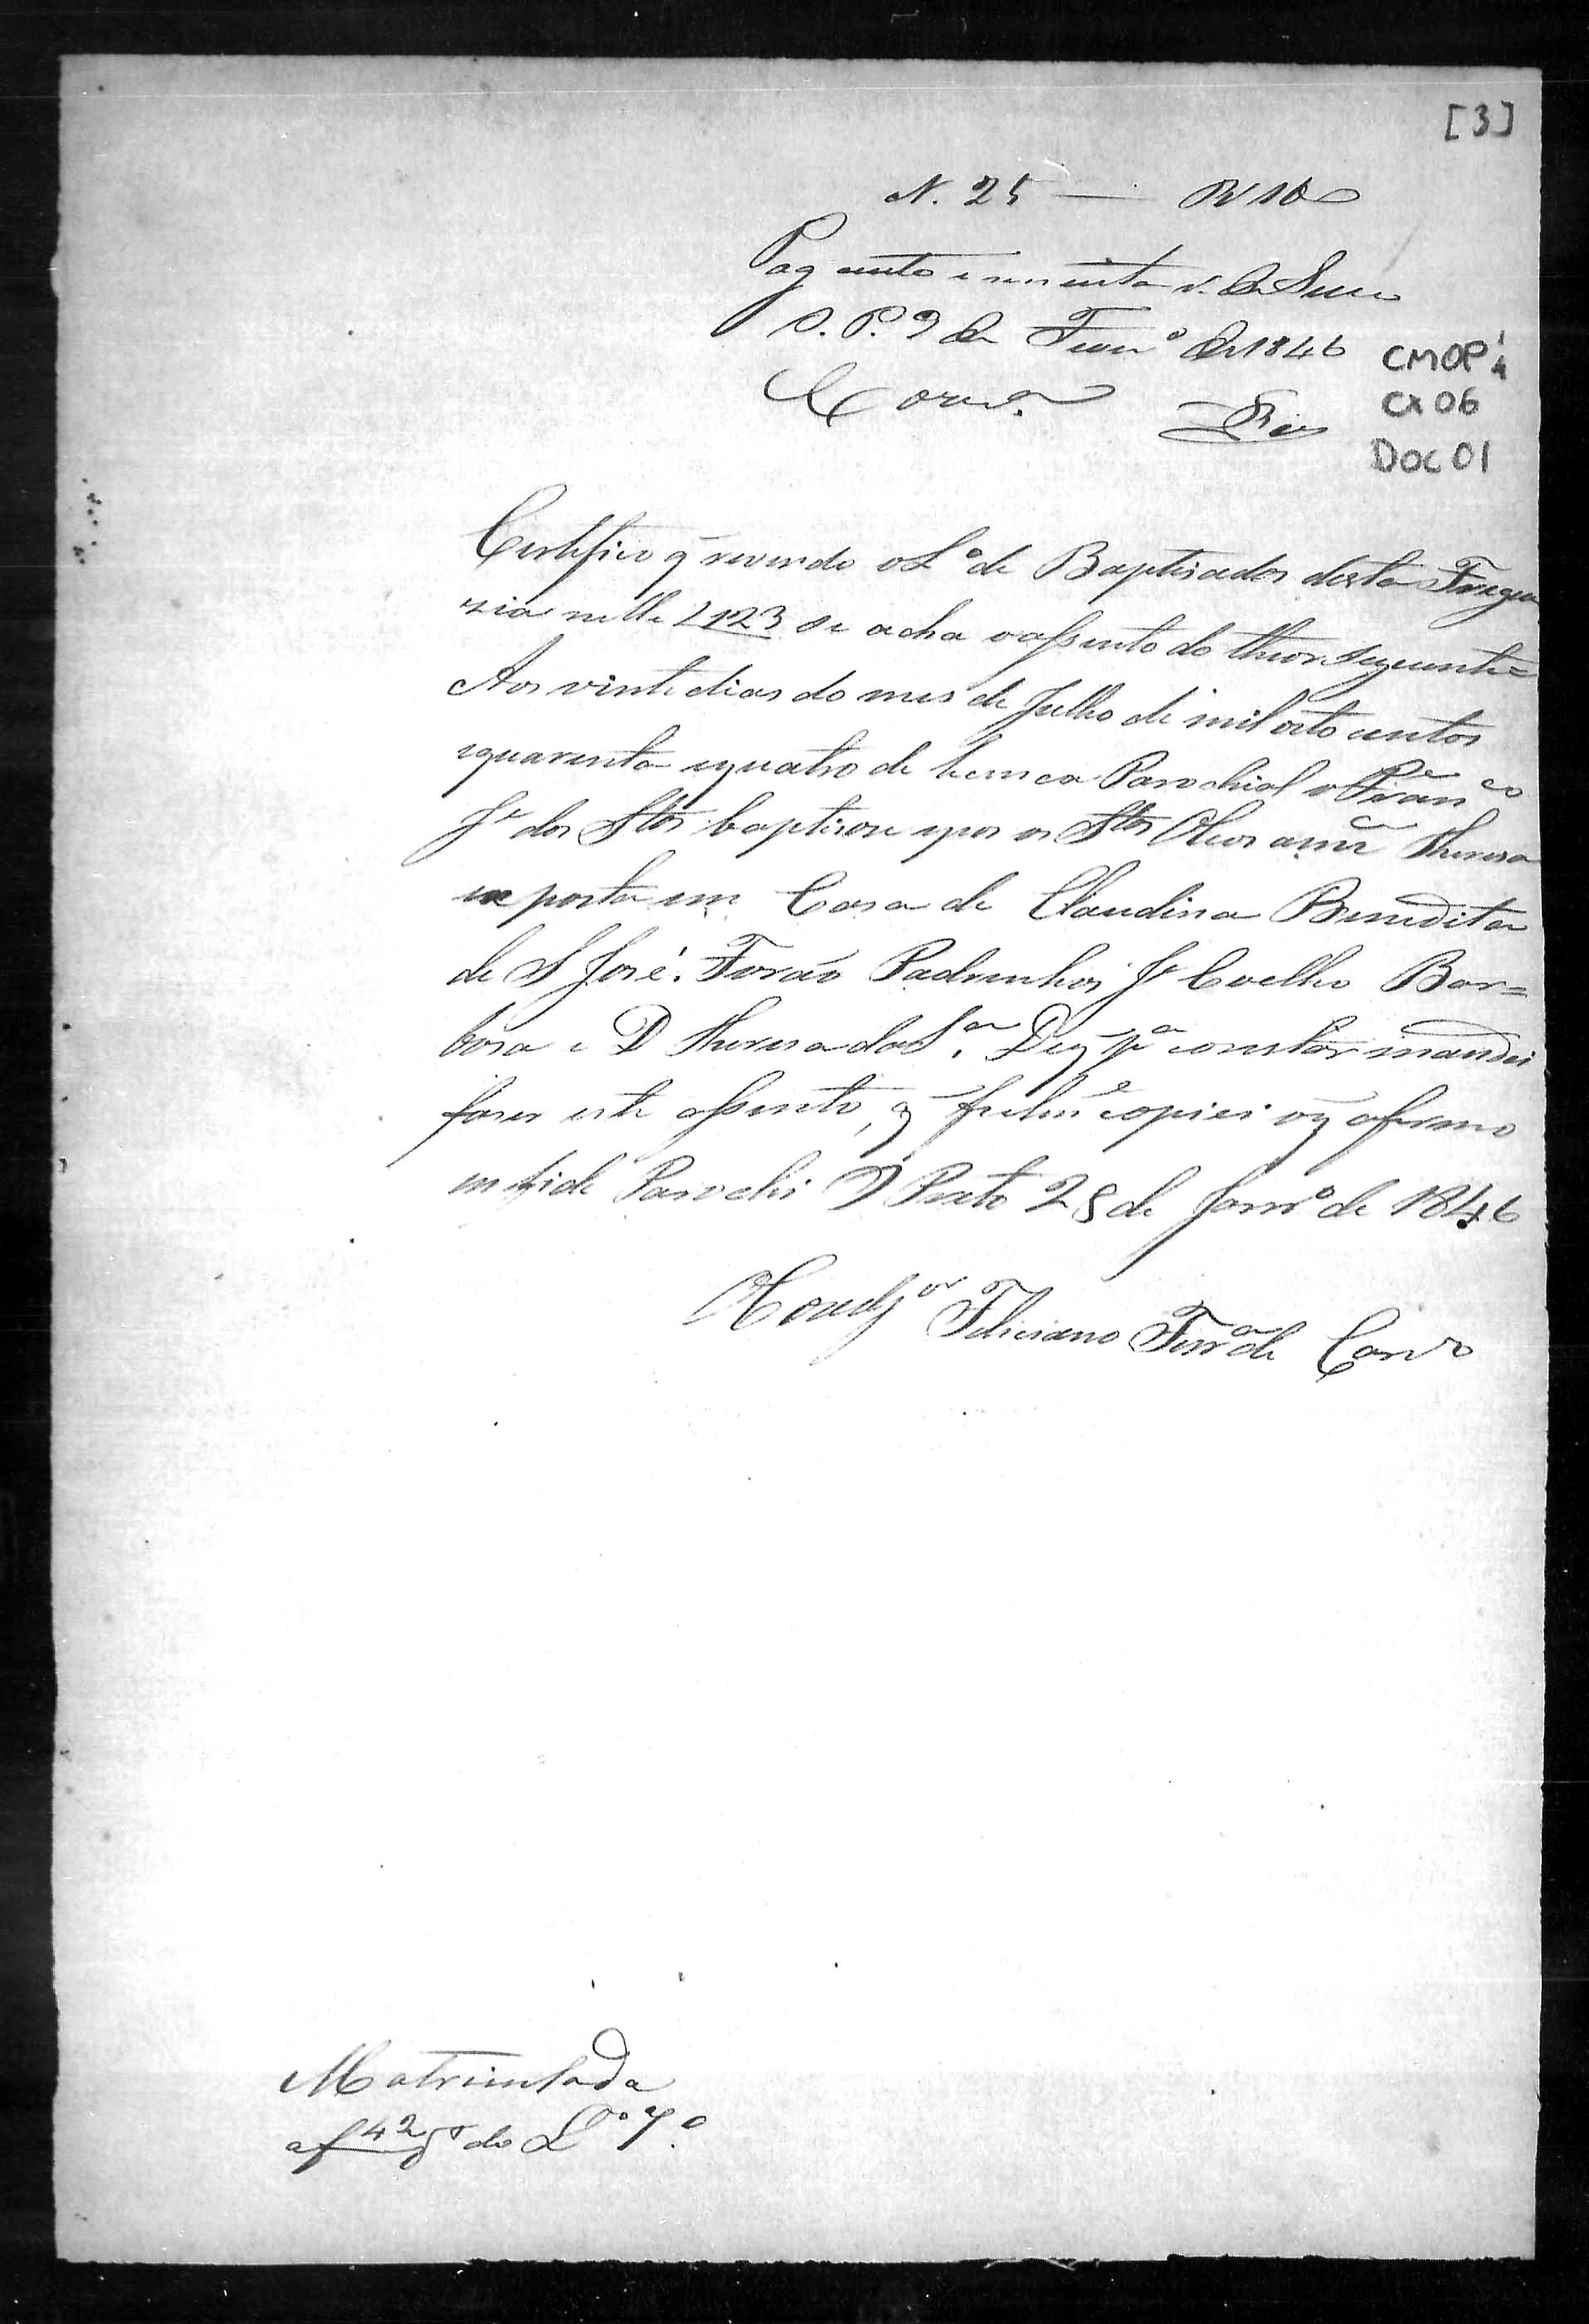 [3]
N. 25 — R 160
Pag cento e secenta r. de Sello
O. P. 9 de Fever.º de 1846
CMOP
CX 06
DOC 01
Certifico q̃ revendo o L.º de Baptisados desta Fregue
sia nelle f 123 se acha o assento do theor seguinte =
Aos vinte dias do mes de Julho de mil oito centos
equarenta equatro de licença Parochial o P.e Fran.co
J.e dos S.tos baptisou e pos os S.tos Oleos a Theresa
exposta em Casa de Claudina Benedita
de S José. Forão Padrinhos J.e Coelho Bar=
bosa e D Theresa da S.a D q̃ p.a constar mandei
faser este assento, q̃ fielm.e copiei o q̃ afirmo
in fide Parochi O Preto 28 de Janr.º de 1846
O Coadj.or Feliciano Ferr.a de Carv.º
Matriculada
a f 42 do L.º 7.º